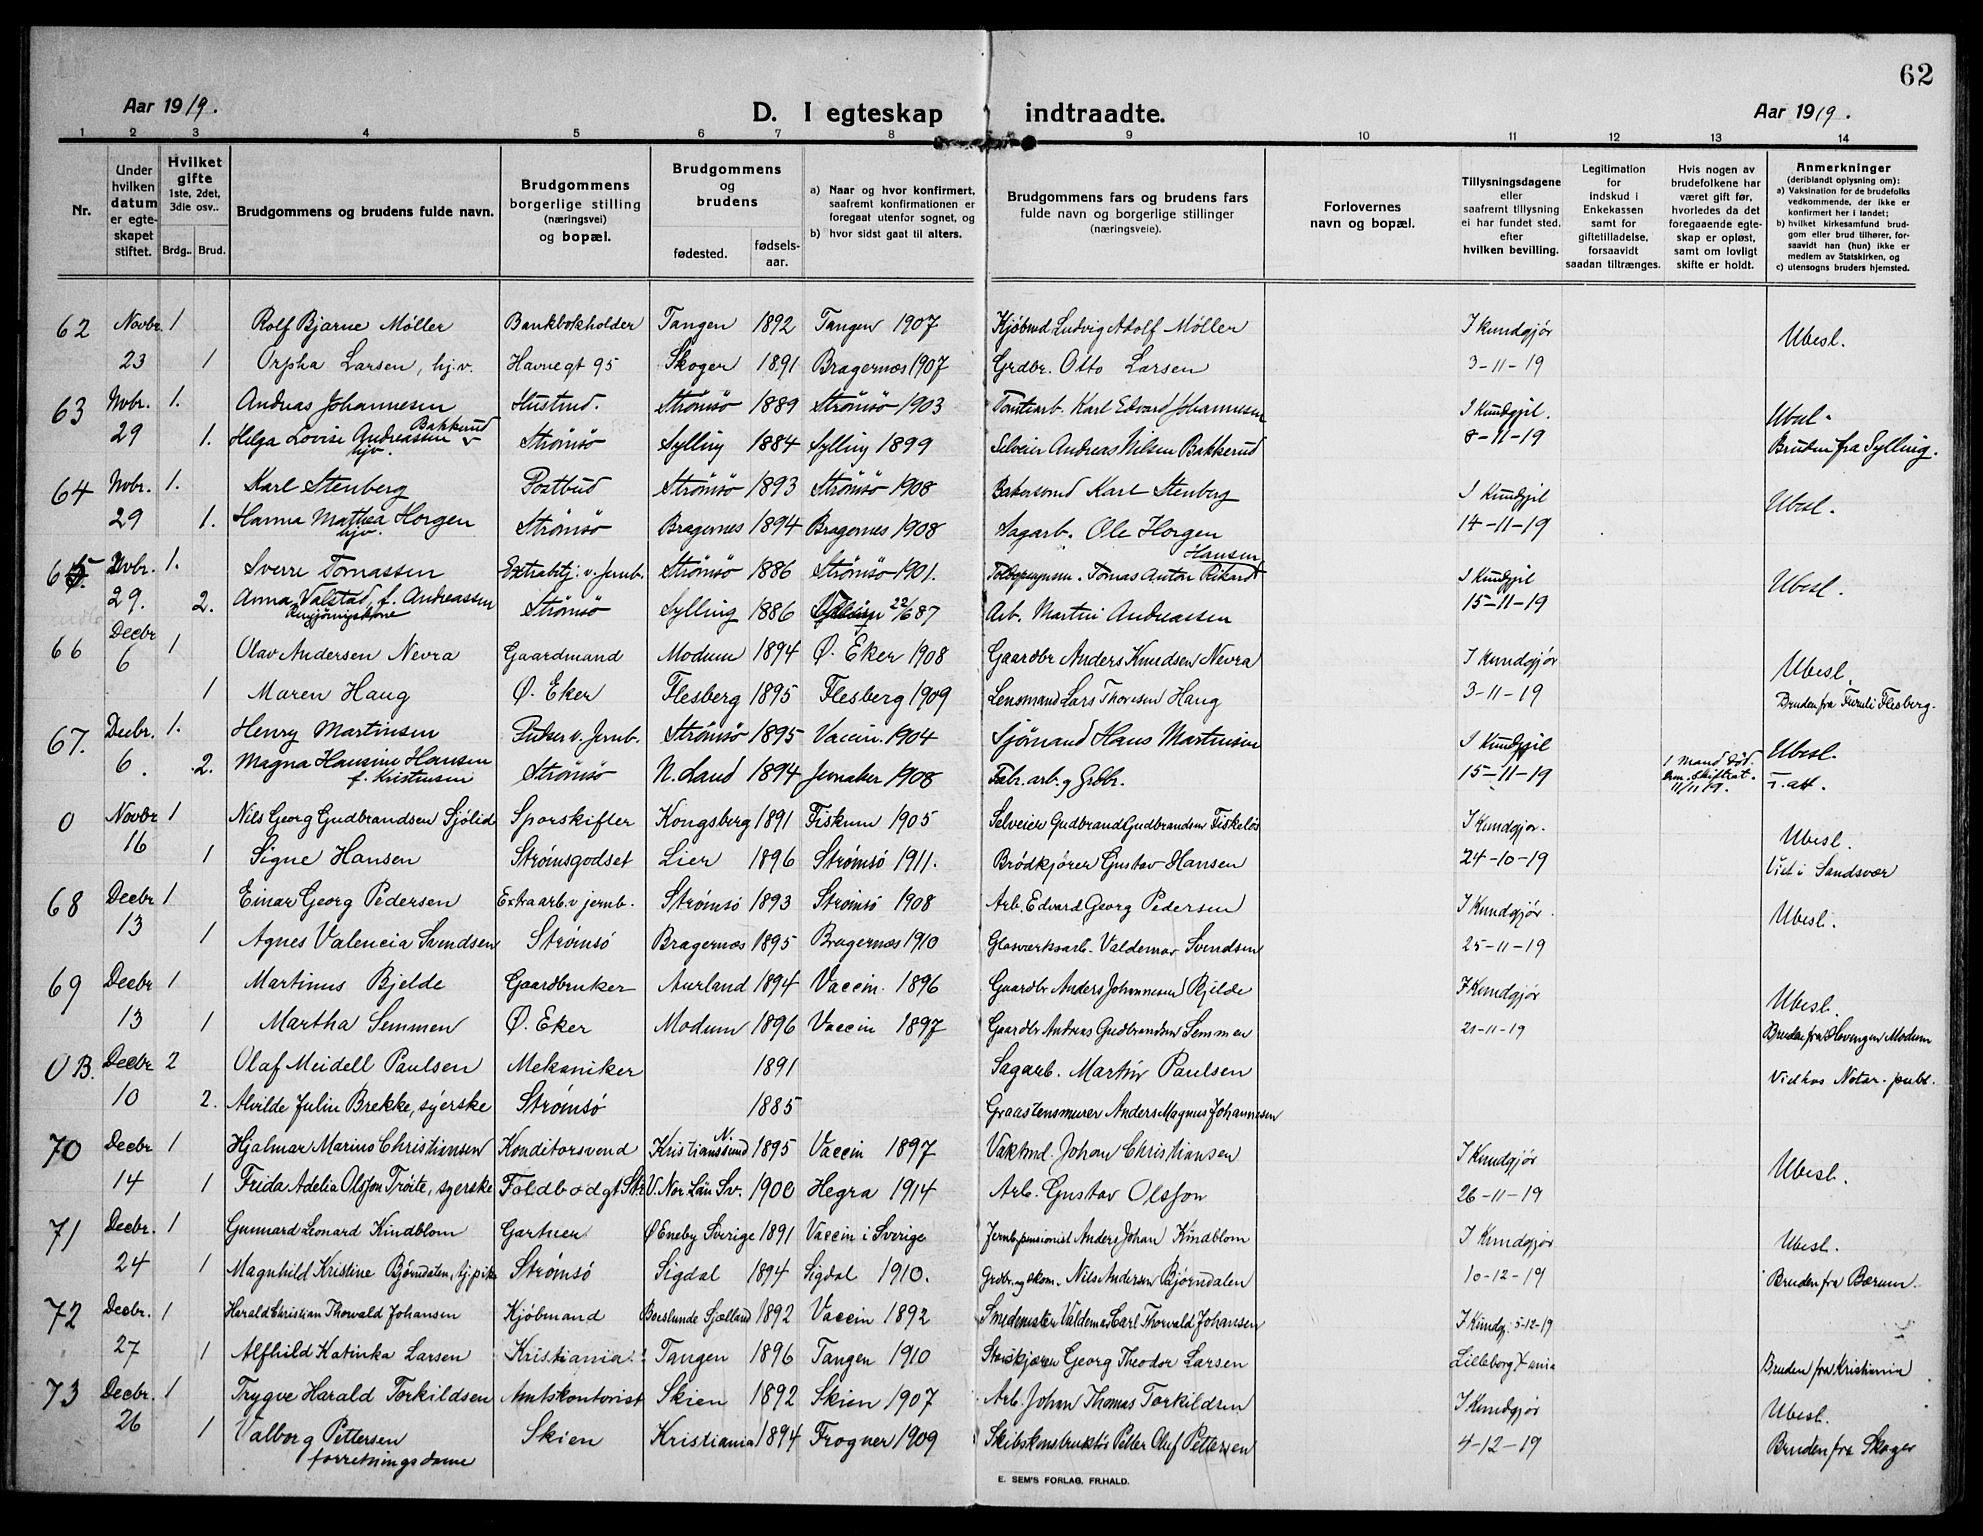 62
Aar 1919.
D. I egteskap indtraadte.
Aar 1919.
1 2 3 4 5 6 7 8 9 10 11 12 13 14
Nr.
Under hvilken datum er egteskapet stiftet.
Hvilket gifte 1ste, 2det, 3die osv..
Brdg.. Brud.
Brudgommens og brudens fulde navn.
Brudgommens borgerlige stilling (næringsvei) og bopæl.
Brudgommens og brudens
fødested. fødsels-aar.
a) Naar og hvor konfirmert, saafremt konfirmationen er foregaat utenfor sognet, og
b) hvor sidst gaat til alters.
Brudgommens fars og brudens fars fulde navn og borgerlige stillinger (næringsveie).
Forlovernes navn og bopæl.
Tillysningsdagene eller saafremt tillysning ei har fundet sted, efter hvilken bevilling.
Legitimation for indskud i Enkekassen samt for giftetilladelse, forsaavidt saadan tiltrænges.
Hvis nogen av brudefolkene har været gift før, hvorledes da det foregaaende egteskap er opløst, samt om lovligt skifte er holdt.
Anmerkninger (deriblandt oplysning om):
a) Vaksination for de brudefolks vedkommende, der ikke er konfirmert her i landet;
b) hvilket kirkesamfund brudgom eller brud tilhører, forsaavidt han (hun) ikke er medlem av Statskirken, og
c) utensogns bruders hjemsted.
62 Novbr. 1 Rolf Bjarne Møller Bankbokholder Tangen 1892 Tangen 1907 Kjøbmd Ludvig Adolf Møller I Kundgjør Ubesl.
23 1 Orpha Larsen, hj.v. Havnegt 95 Skoger 1891 Bragernæs 1907 Grdbr. Otto Larsen 3-11-19
63 Nvbr. 1. Andreas Johannesen Strømsö 1889 Strømsö 1903 Tomtearb. Karl Edvard Johannesen I Kundgjl. Ubesl.
29 1. Helga Lovise Andreassen Bakkerud hjv. Strømsö Sylling 1884 Sylling 1899 Selveier Andreas Nilsen Bakkerud 8-11-19 Bruden fra Sylling.
64 Nvbr. 1. Karl Stenberg Postbud Strömsö 1893 Strömsö 1908 Bakersvend Karl Stenberg I Kundgjl Ubesl.
29 1. Hanna Mathea Horgen hjv. Strömsö Bragernes 1894 Bragernes 1908 Sagarb. Ole Horgen 14-11-19
65. Nvbr. 1. Sverre Tomassen Extrabetj. v. Jernb. Strömsö 1886 Strömsö 1901. Tomas Anton Rikardt Hansen I Kundgjl Ubesl.
29. 2. Anna Valstad, f. Andreassen Rengjøringskone Strömsö Sylling 1886 22/6 87 Arb. Martin Andreassen 15-11-19
66 Decbr 1 Olav Andersen Nevra Gaardmand Modum 1894 Ø. Eker 1908 Gaardbr Anders Knudsen Nevra I Kundgjør Ubesl.
6 1 Maren Haug Ø. Eker Flesberg 1895 Flesberg 1909 Lensmand Lars Thoresen Haug 3-11-19 Bruden fra Furuli Flesberg.
67. Decbr. 1. Henry Martinsen Pusser v. Jernb. Strömsö 1895 Vaccin. 1904 Sjømand Hans Martinsen I Kundgjl Ubesl.
6. 2. Magna Hansine Hansen f. Kristensen Strömsö N. Land 1894 Jevnaker 1908 Fabr. arb. og Grdbr. 15-11-19 1 Mand död. Erm. Skifteret. 11/11 19. T. att.
0 Novbr 1 Nils Georg Gudbrandsen Sjölid Sporskifter Kongsberg 1891 Fiskum 1905 Selveier Gudbrand Gudbrandsen Fiskeløs I Kundgjør. Ubesl.
16 1 Signe Hansen Strömsgodset Lier 1896 Strömsö 1911. Brödkjører Gustav Hansen 24-10-19 Viet i Sandsvær
68 Decbr 1 Einar Georg Pedersen Extraarb. v jernb. Strömsö 1893 Strömsö 1908 Arb. Edvard Georg Pedersen I Kundgjør. Ubesl.
13 1 Agnes Valencia Svendsen Strömsö Bragernæs 1895 Bragernæs 1910 Glasværksarb. Valdemar Svendsen 25-11-19
69 Decbr 1 Martinus Bjelde Gaardbruker Aurland 1894 Vaccin. 1896 Gaardbr Anders Johannesen Bjelde I Kundgjør Ubesl.
13 1 Martha Semmen Ø. Eker Modum 1896 Vaccin 1897 Gaardbr Andreas Gudbrandsen Semmen 21-11-19 Bruden fra Hovengen Modum
0 B. Decbr 2 Olaf Meidell Paulsen Mekaniker 1891 Sagarb. Martin Paulsen Viet hos Notar. publ.
10 2. Alvilde Julie Brekke, syerske Strömsö 1885 Graastensmurer Anders Magnus Johannesen
70 Decbr 1 Hjalmar Marius Christiansen Konditorsvend Kristianssund N. 1895 Vaccin 1897 Vaktmd. Johan Christiansen I Kundgjør Ubesl.
14 1 Frida Adelia Olsson Tröite, syerske Toldbodgt Str V. Nor Län Sv. 1900 Hegra 1914 Arb. Gustav Olsson 26-11-19
71 Decbr. 1 Gunnard Leonard Kindblom Gartner Ø Eneby Sverige 1891 Vaccin i Sverige Jernb.pensionist Anders Johan Kindblom I Kundgjør Ubesl.
24 1 Magnhild Kristine Bjørndalen, hj.pike Strömsö Sigdal 1894 Sigdal 1910. Grdbr. og økom. Nils Andersen Bjørndalen 10-12-19 Bruden fra Bærum.
72 Decbr. 1 Harald Christian Thorvald Johansen Kjöbmand Borslunde Sjælland 1892 Vaccin 1892 Smedemester Valdemar Carl Thorvald Johansen I Kundg. 5-12-19
27 1 Alfhild Katinka Larsen Kristiania. Tangen 1896 Tangen 1910 Georg Theodor Larsen Lilleborg X ania Bruden fra Kristiania
73 Decbr. 1 Trygve Harald Torkildsen Amtskontorist Skien 1892 Skien 1907 Arb. Johan Thomas Torkildsen I Kundgjør Ubesl.
26 1 Valborg Pettersen forretningsdame Skien Kristiania 1894 Frogner 1909 Skibskonstruktör Petter Oluf Pettersen 4-12-19 Bruden fra Skoger
E. SEM'S FORLAG. FR.HALD.